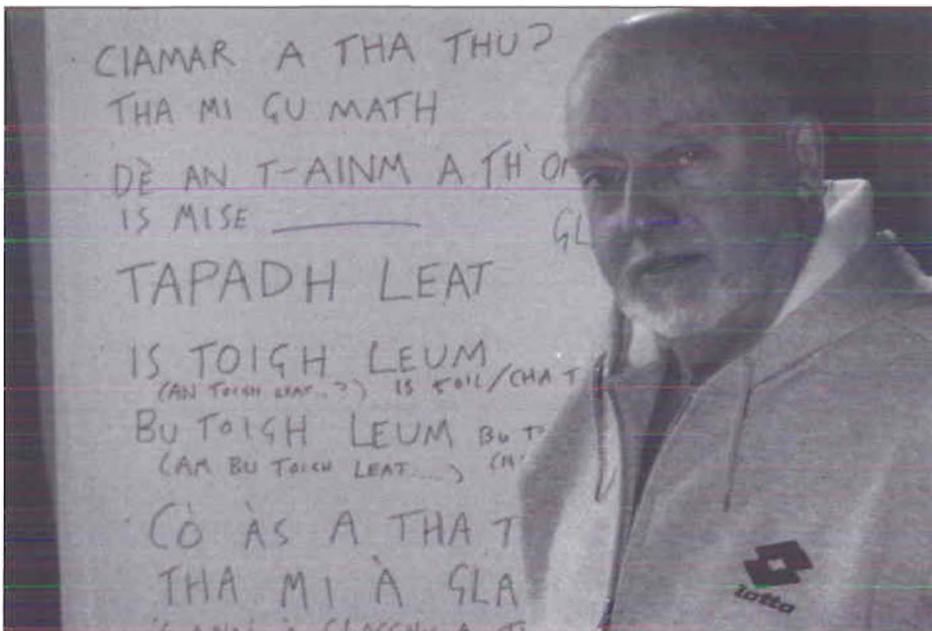 CIAMAR A THA THU?
THA MI GU MATH
DÈ AN T-AINM A TH'
IS MISE
GL
TAPADH LEAT
IS TOIGH LEUM
(AN TOIGH LEAT..?) IS TOIL/CHA T
BU TOIGH LEUM BU T
(AM BU TOIGH LEAT....)
CÒ ÀS A THA T
THA MI À GLA
lotto